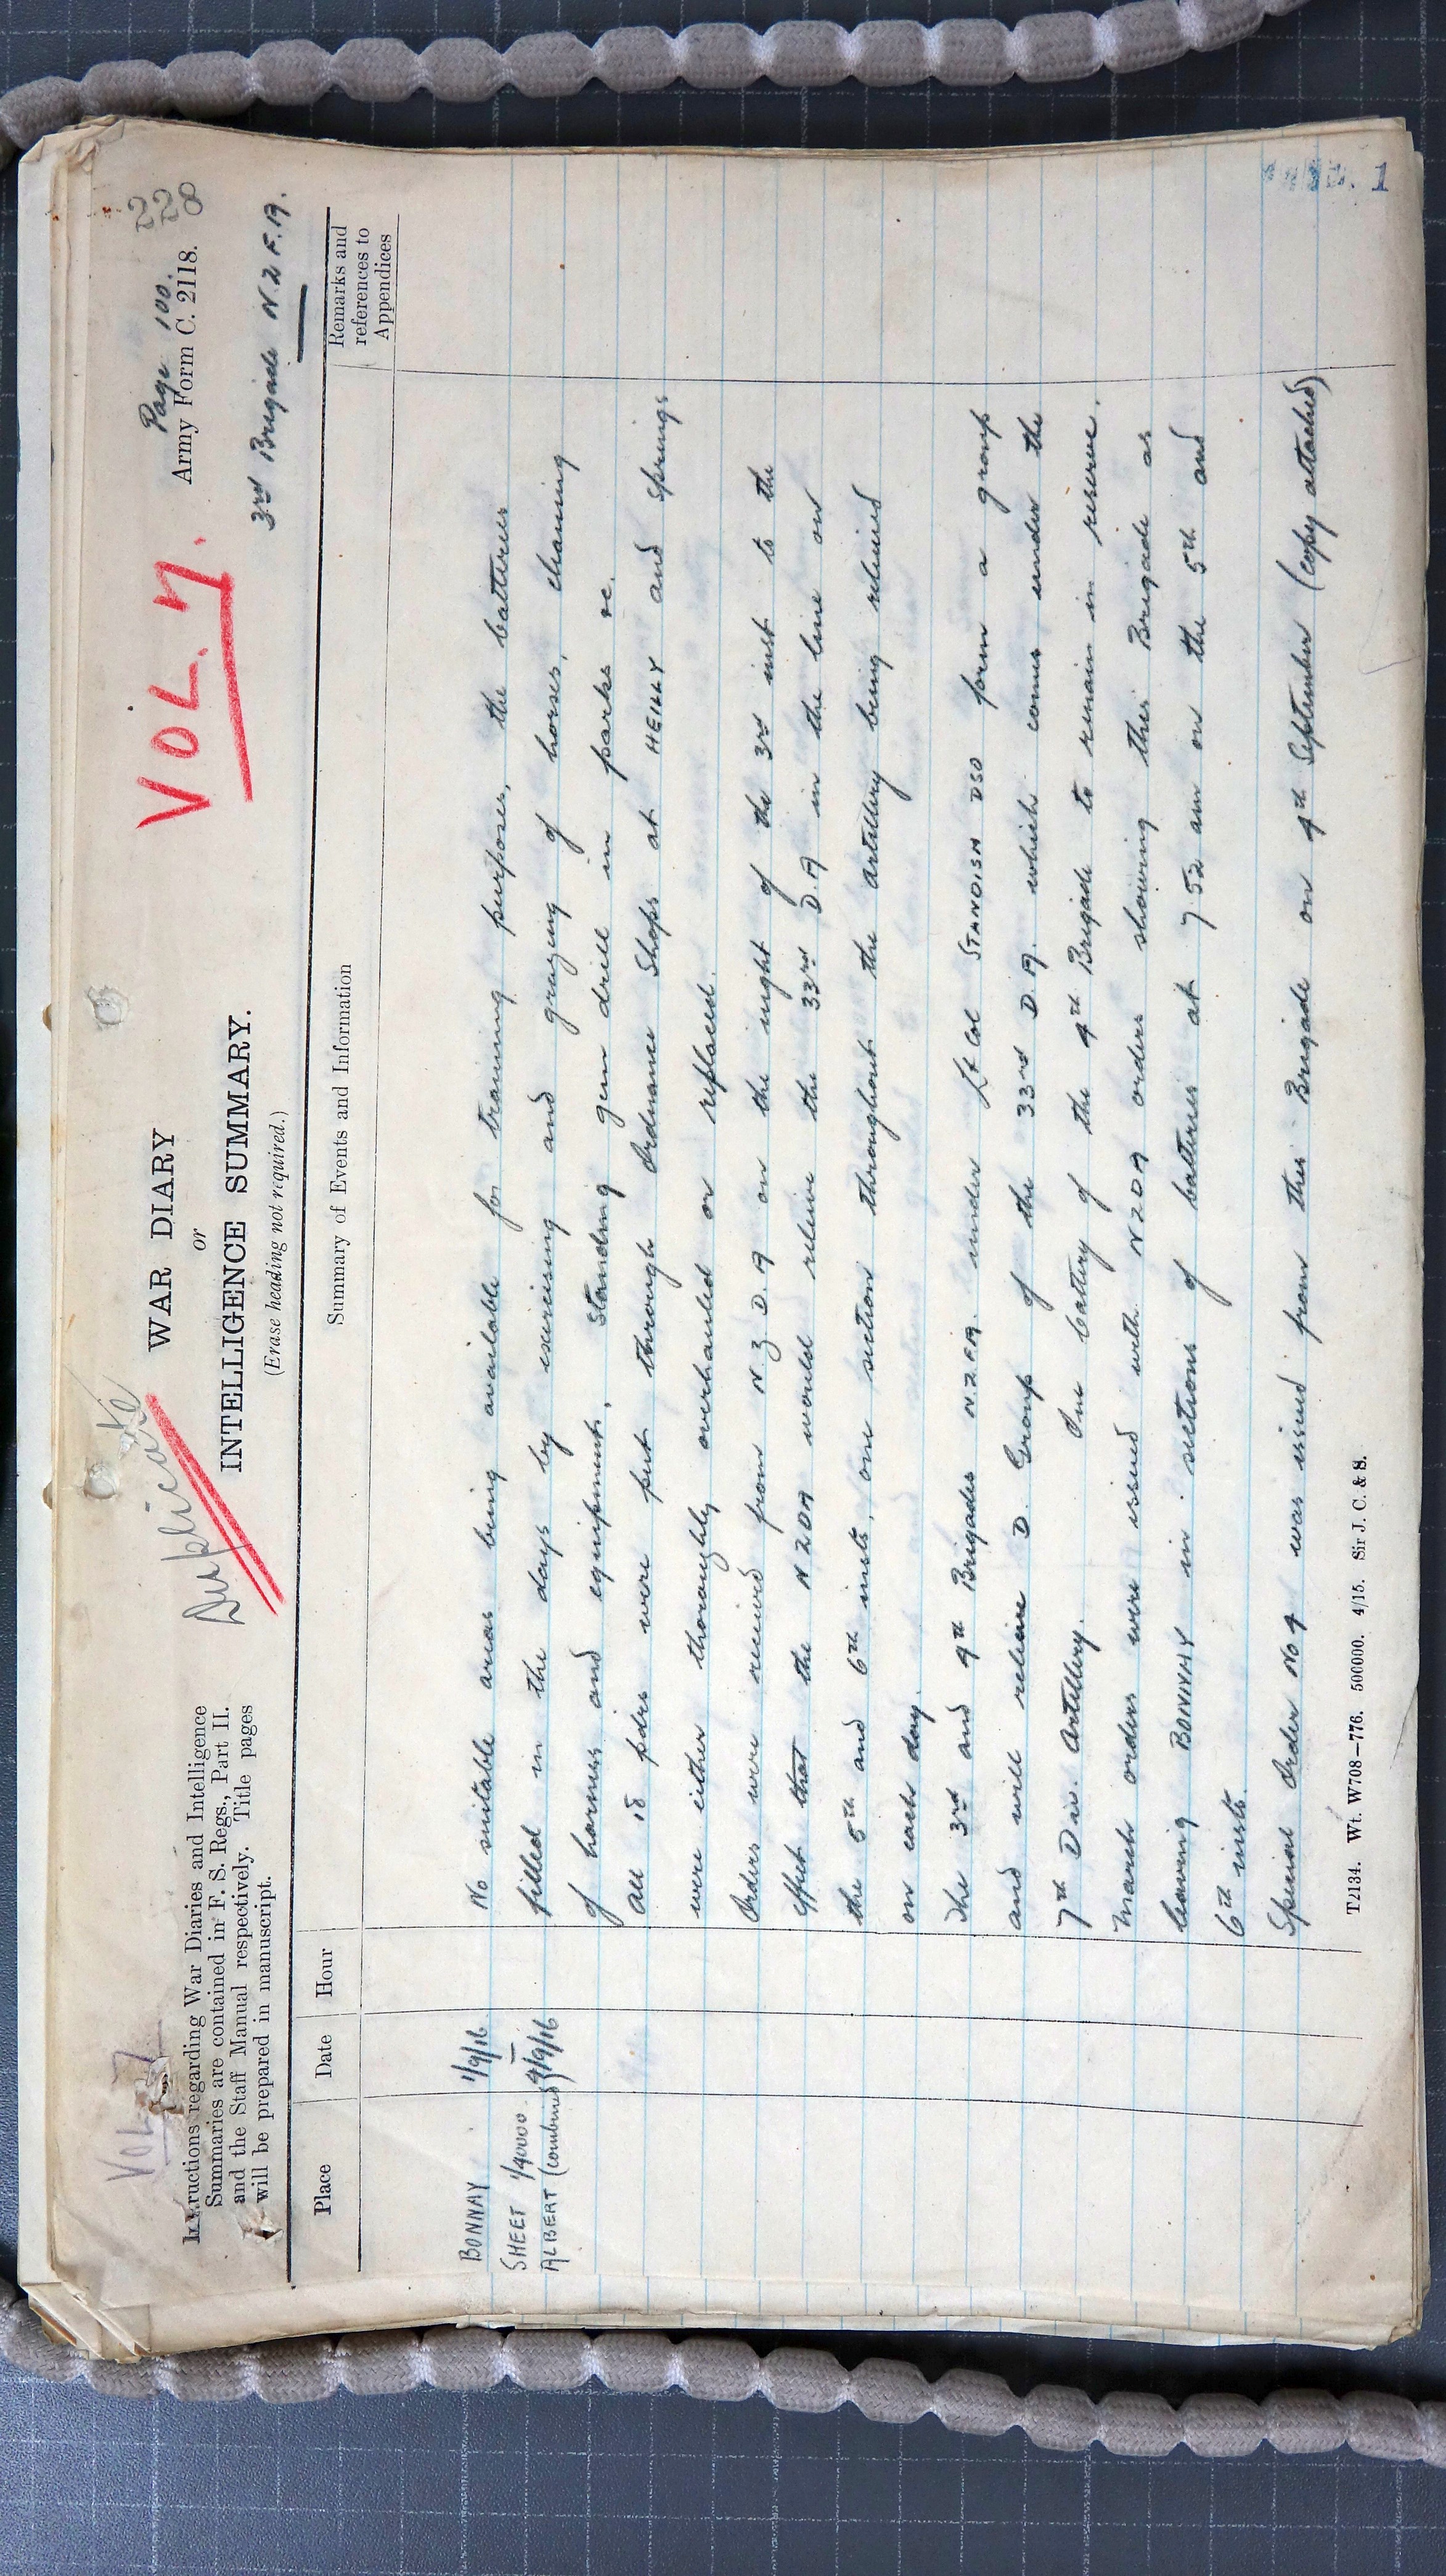 Page 100.
228
Army Form C. 2118.
VOL. 7.
3rd Brigade N.Z.F.A.
Duplicate
WAR DIARY
or
INTELLIGENCE SUMMARY.
(Erase heading not required.)
Vol 7
Instructions regarding War Diaries and Intelligence
Summaries are contained in F. S. Regs., Part II.
and the Staff Manual respectively. Title pages
will be prepared in manuscript.
Place
Date
Hour
Summary of Events and Information
Remarks and
references to
Appendices
BONNAY 1/9/16
SHEET 1/40000 –
ALBERT (combined) 4/9/16
No suitable areas being available for training purposes, the batteries
filled in the days by exercising and grazing of horses, cleaning
of harness and equipment, standing gun drill in parks &c.
All 18 pdrs were put through Ordnance Shops at HEILLY and springs
were either thoroughly overhauled or replaced.
Orders were received from N.Z.D.A on the night of the 3rd inst to the
effect that the NZDA would relieve the 33rd D.A in the line on
the 5th and 6th insts, one section throughout the artillery being relieved
on each day.
The 3rd and 4th Brigades N.Z.F.A. under Lt Col STANDISH DSO form a group
and will relieve D. Group of the 33rd D.A. which comes under the
7th Div. Artillery. One battery of the 4th Brigade to remain in reserve.
March orders were issued with NZDA orders showing this Brigade as
leaving BONNAY in sections of batteries at 7.52 am on the 5th and
6th insts.
Special Order No 4 was issued from this Brigade on 4th September (copy attached)
1
T2134. Wt. W708—776. 500000. 4/15. Sir J. C. & S.